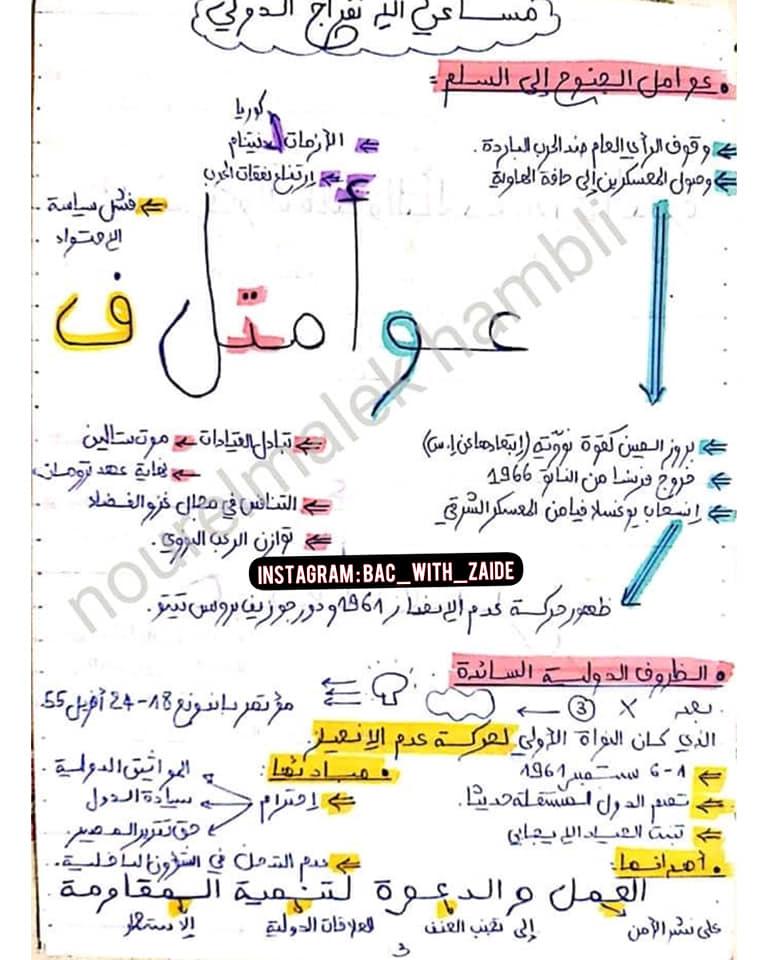 مساعي الانفراج الدولي
• عوامل الجنوح إلى السلم :
⇐ وقوف الرأي العام ضد الحرب الباردة .
⇐ وصول المعسكرين إلى حافة الهاوية
كوريا
⇐ الأزمات فيتنام
⇐ إرتفاع نفقات الحرب
⇐ فشل سياسة
الاحتواء
ع
عوامتل ف
⇐ بروز الصين كقوة نووية (إبتعادها عن إ.س)
⇐ خروج فرنسا من الناتو 1966
⇐ إنسحاب يوغسلافيا من المعسكر الشرقي
⇐ تبادل القيادات ← موت ستالين
← نهاية عهد ترومان
⇐ التنافس في مجال غزو الفضاء
⇐ توازن الرعب النووي .
INSTAGRAM:BAC_WITH_ZAIDE
ظهور حركة عدم الانحياز 1961 ودور جوزيف بروس تيتو .
nourelmalek hambli
• الظروف الدولية السائدة
بعد X ③ ← مؤتمر باندونغ 18-24 أفريل 55.
الذي كان النواة الأولى لحركة عدم الانحياز
⇐ 1-6 سبتمبر 1961
⇐ تضم الدول المستقلة حديثا .
⇐ تبنت الحياد الايجابي
• مبادئها :
⇐ إحترام
المواثيق الدولية .
سيادة الدول
حق تقرير المصير .
⇐ عدم التدخل في الشؤون الداخلية .
• أهدافها :
العمل والدعوة لتنمية المقاومة
على نشر الأمن
إلى تجنب العنف
العلاقات الدولية
الاستعمار
3